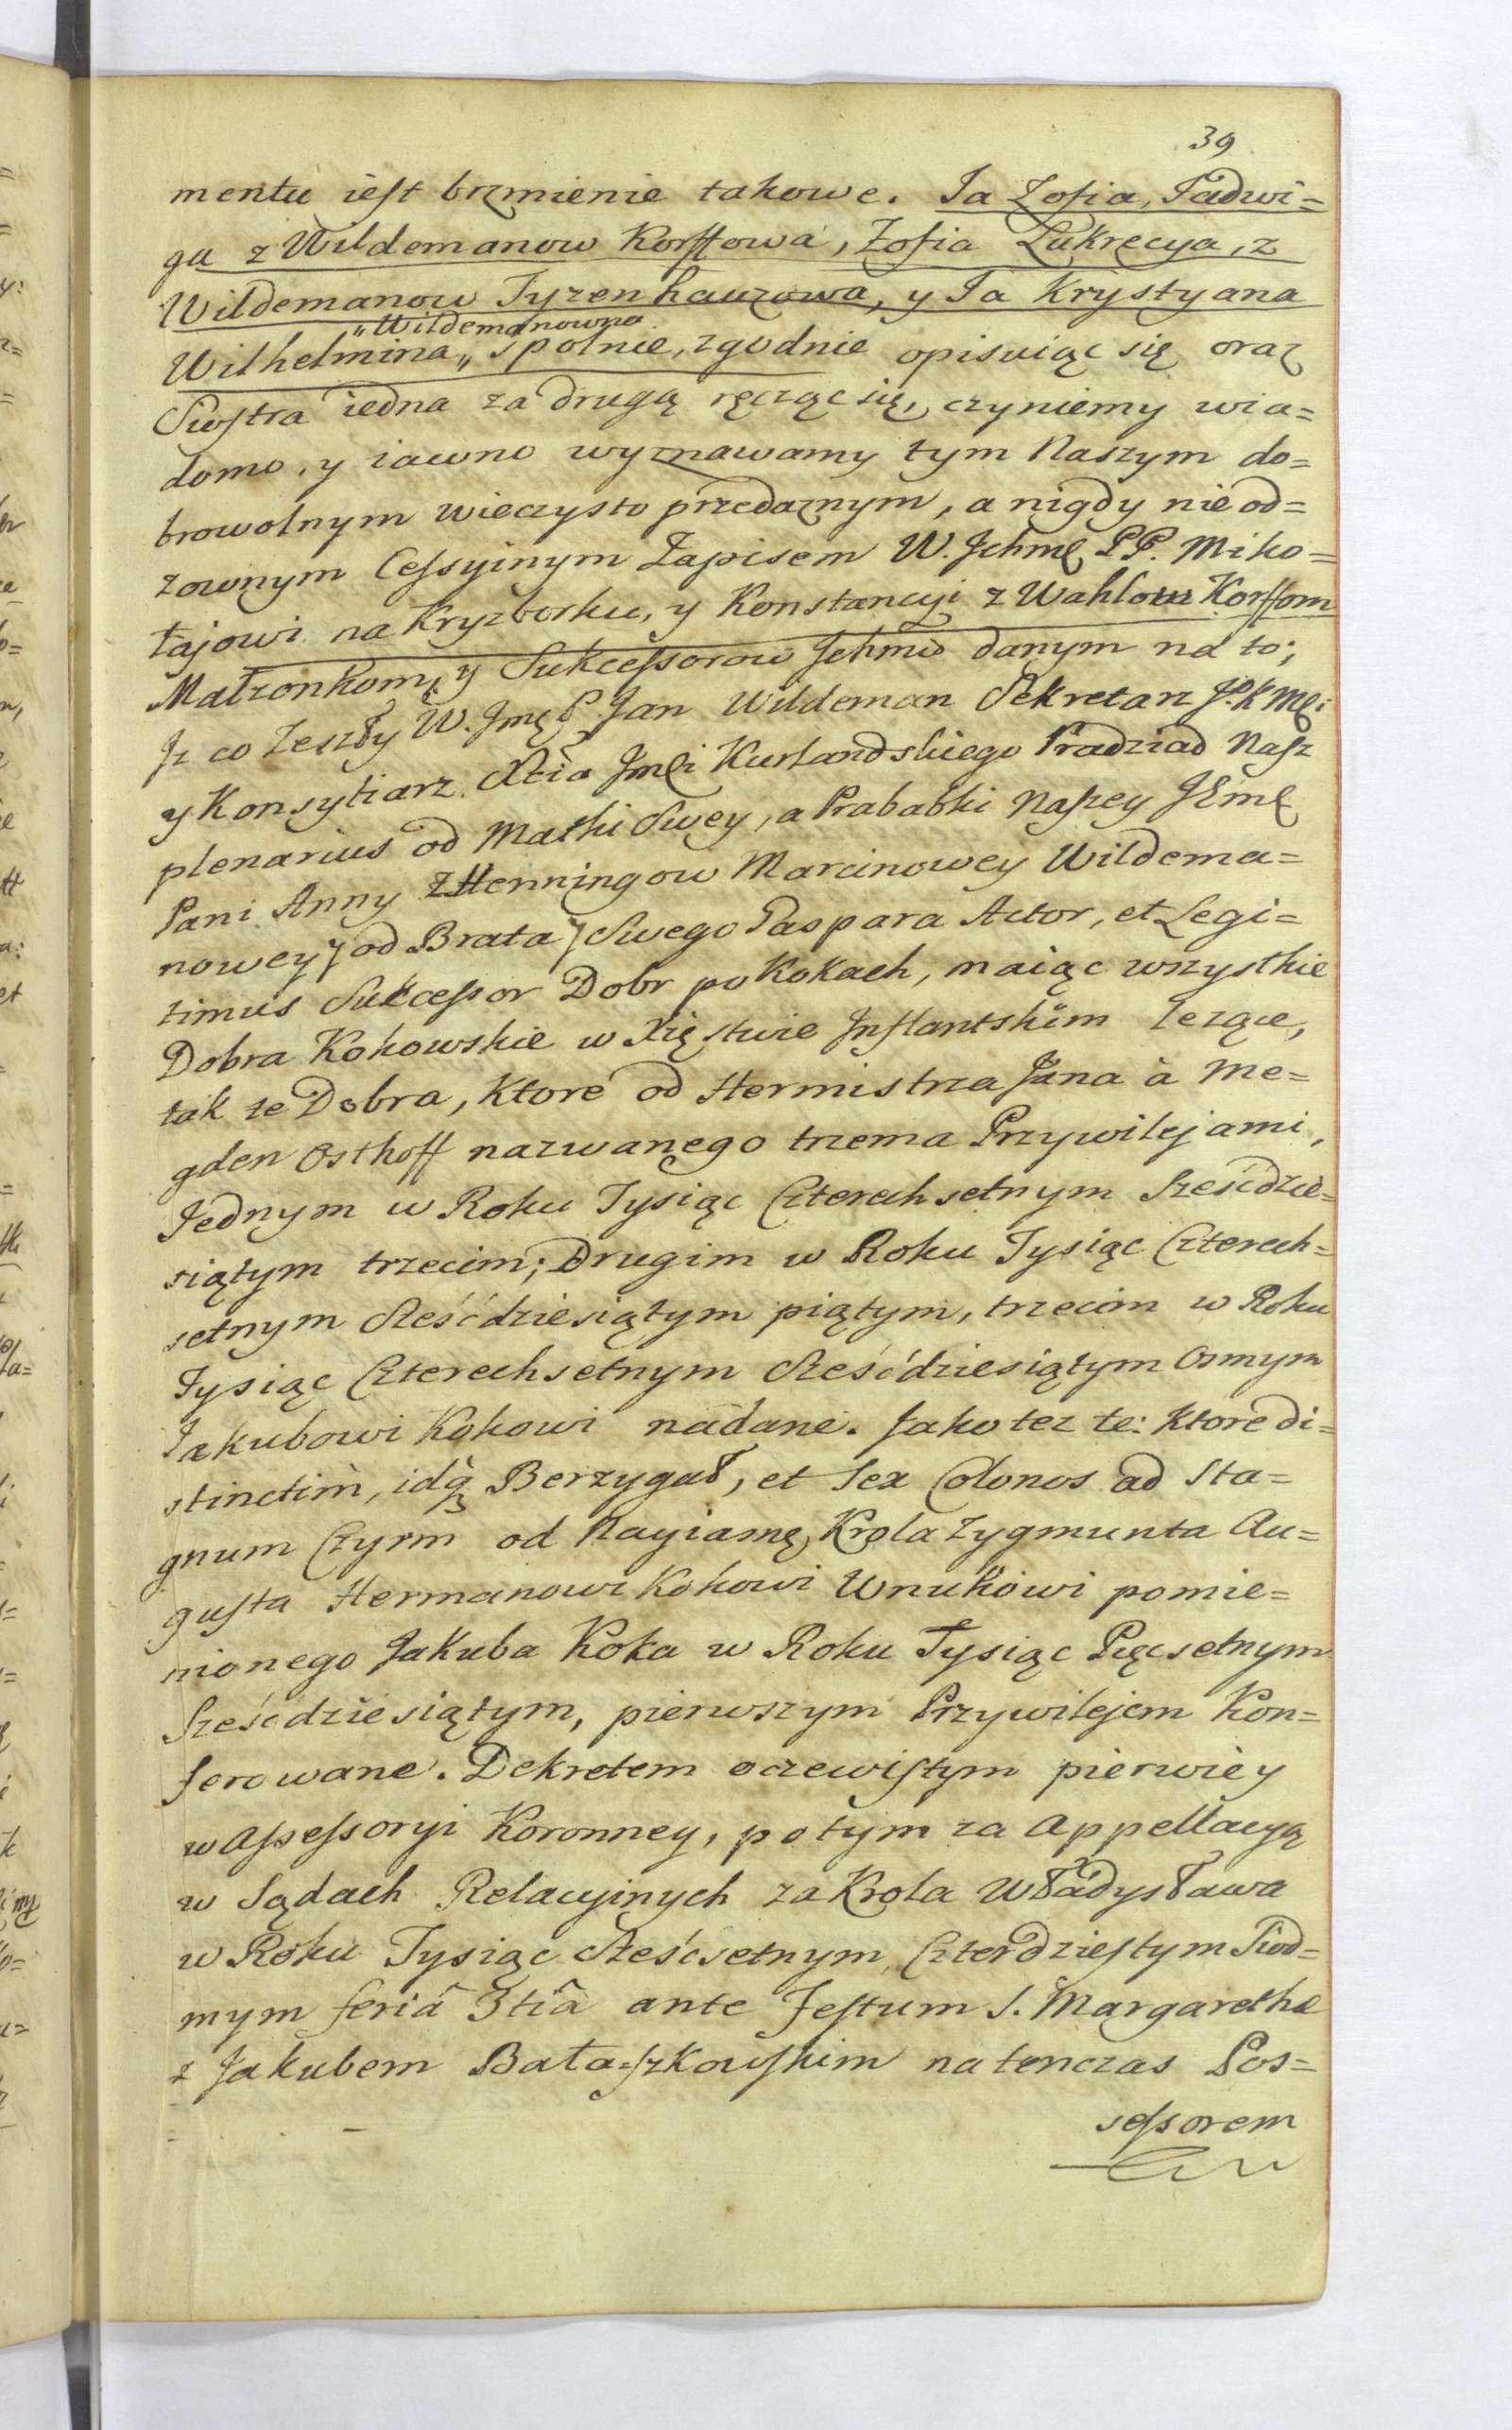 39
mentu iest brzmienie takowe. Ja Zofia, Jadwi=
ga z Wildemanow Korffowa, Zofia Lukrecya, z
Wildemanow Tyzenhauzowa, y Ja Krystyana
„Wildemanowna
Wilhelmina„ spolnie, zgodnie opisuiąc się oraz
Siostra iedna za drugą ręcząc się, czyniemy wia=
domo, y iawno wyznawamy tym Naszym do=
browolnym wieczysto przedaznym, a nigdy nie od=
zownym Cessyinym Zapisem W. Jchmę PP. Miko=
łajowi na Kryzborku, y Konstancyi z Wahlow Korffom
Małzonkom, y Sukcessorow Jchmo danym na to;
Jz co Zeszły W. Jmę P. Jan Wildeman Sekretarz J.K Mci
y Konsyliarz Xtia Jmci Kurlandskiego Pradziad Nasz
plenarius od Matki Swey, a Prababki Naszey JEmę
Pani Anny z Henningow Marcinowey Wildema=
nowey / od Brata / Swego Paspara Actor, et Legi=
timus Sukcessor Dobr po Kokach, maiąc wszystkie
Dobra Kokowskie w Xięstwie Inflantskim lezące,
tak te Dobra, Ktore od Hermistrza Jana à Me=
gden Osthoff nazwanego trzema Przywilejami,
Jednym w Roku Tysiąc Czterechsetnym Sześcdzie=
siątym trzecim; Drugim w Roku Tysiąc Czterech=
setnym Sześćdziesiątym piątym, trzecim w Roku
Tysiąc Czterechsetnym Sześćdziesiątym Osmym
Jakubowi Kokowi nadane. Jako tez te: Ktore di=
stinctim, idq Berzygał, et Sex Colonos ad Sta=
gnum Czyrm od Nayiasnę, Krola Zygmunta Au=
gusta Hermanowi Kokowi Wnukowi pomie=
nionego Jakuba Koka w Roku Tysiąc Pięcsetnym
Sześćdziesiątym, pierwszym Przywilejem Kon=
ferowane. Dekretem oczewistym pierwiey
w Assessoryi Koronney, potym za Appellacyą
w Sądach Relacyinych za Krola Władysława
w Roku Tysiąc Sześćsetnym, Czterdziestym Siod=
mym feriâ 3tiâ ante Festum S. Margarethæ
z Jakubem Bała=szkowskim natenczas Pos=
sessorem